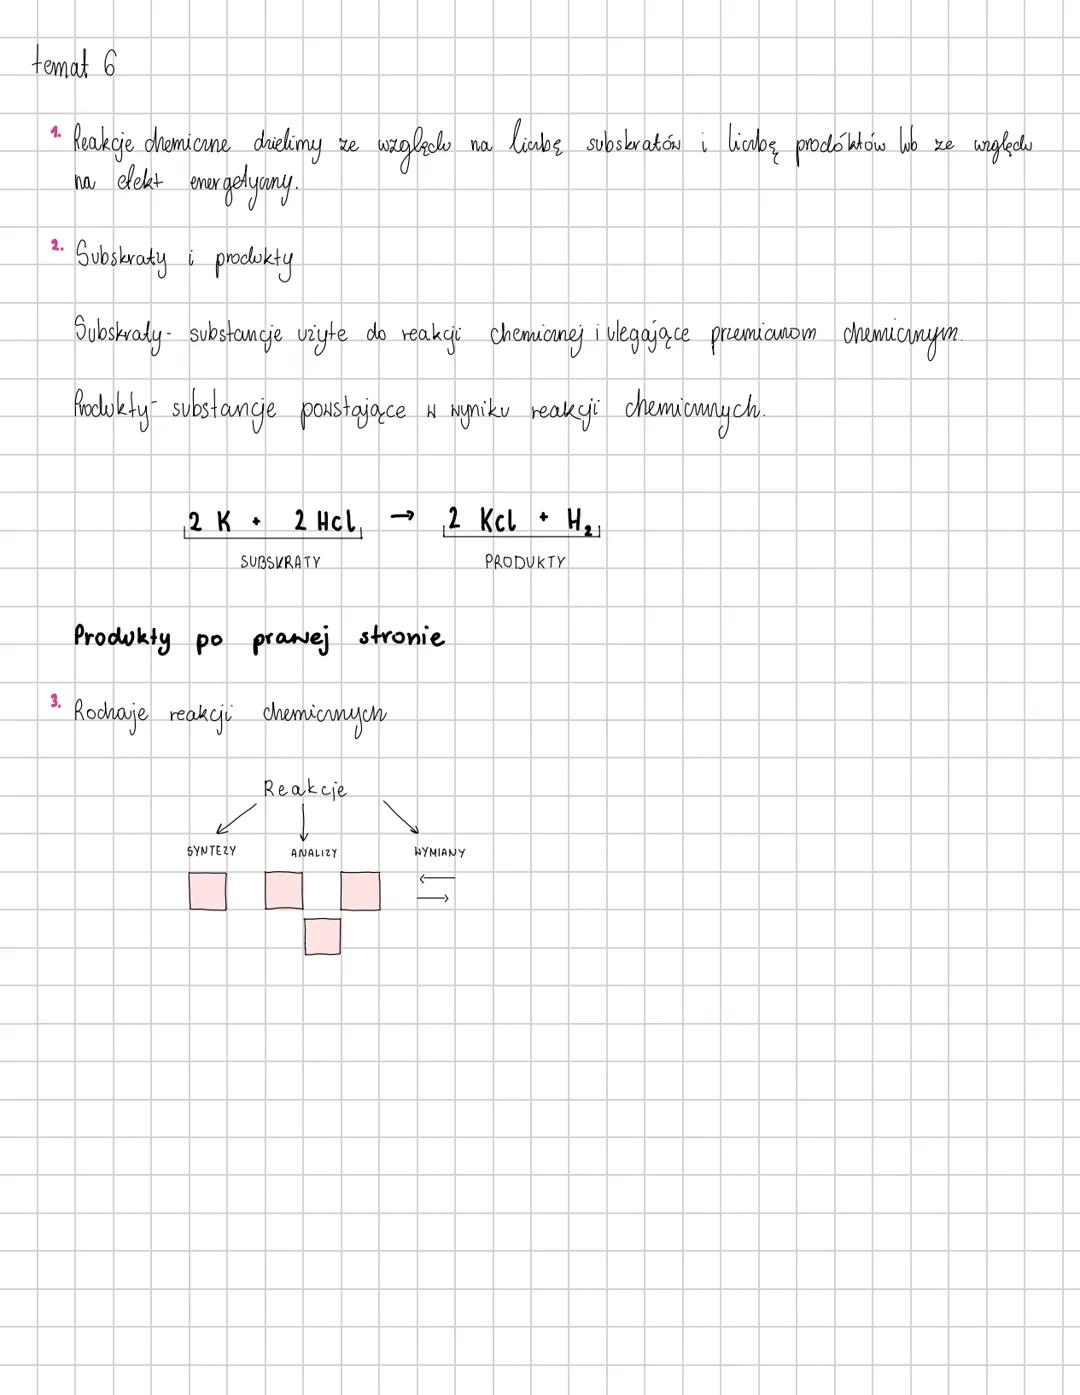 temat 6
1. Reakcje chemiczne dzielimy ze względu na liczbę subskratów i liczbę prodóktów lub ze względu
na efekt energetyczny.
2. Subskraty i produkty
Subskraty- substancje użyte do reakcji chemicznej i ulegające przemianom chemicznym.
Produkty- substancje powstające w wyniku reakcji chemicznych.
2 K + 2 Hcl → 2 Kcl + H₂
SUBSKRATY PRODUKTY
Produkty po prawej stronie
3. Rodzaje reakcji chemicznych
Reakcje
SYNTEZY ANALIZY WYMIANY